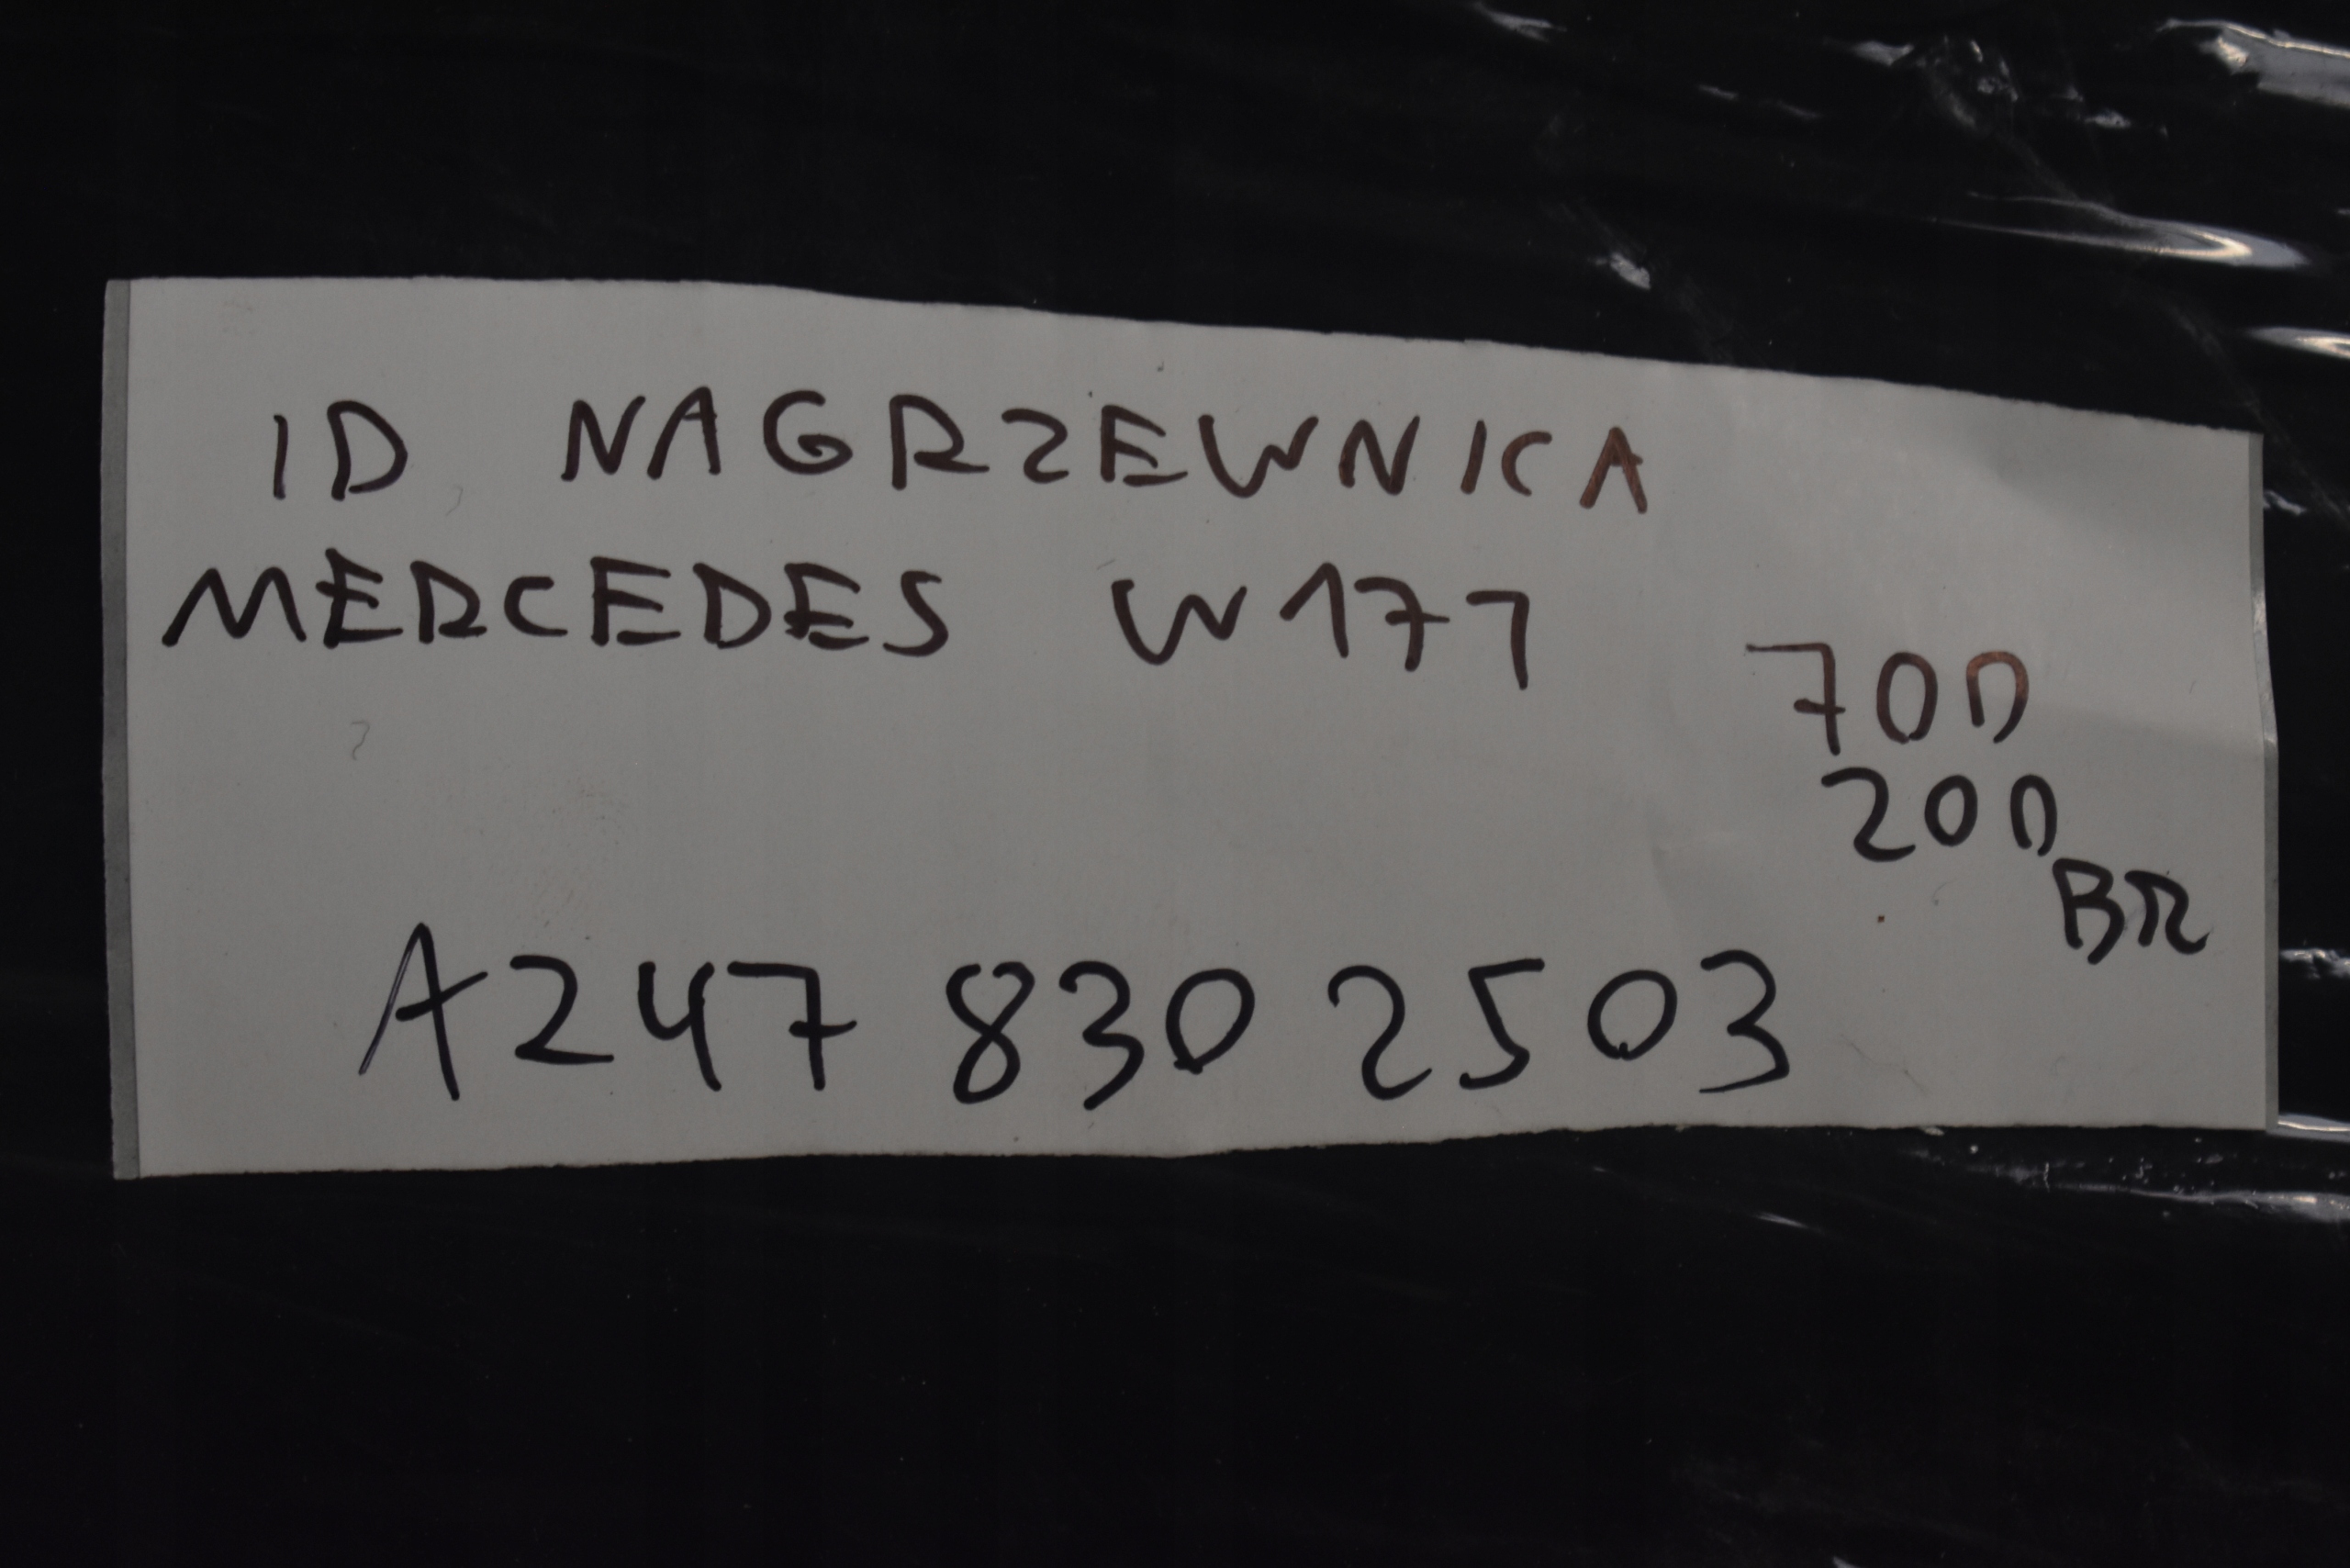 ID NAGRZEWNICA
MERCEDES W177
700
200
BR
A247 830 2503